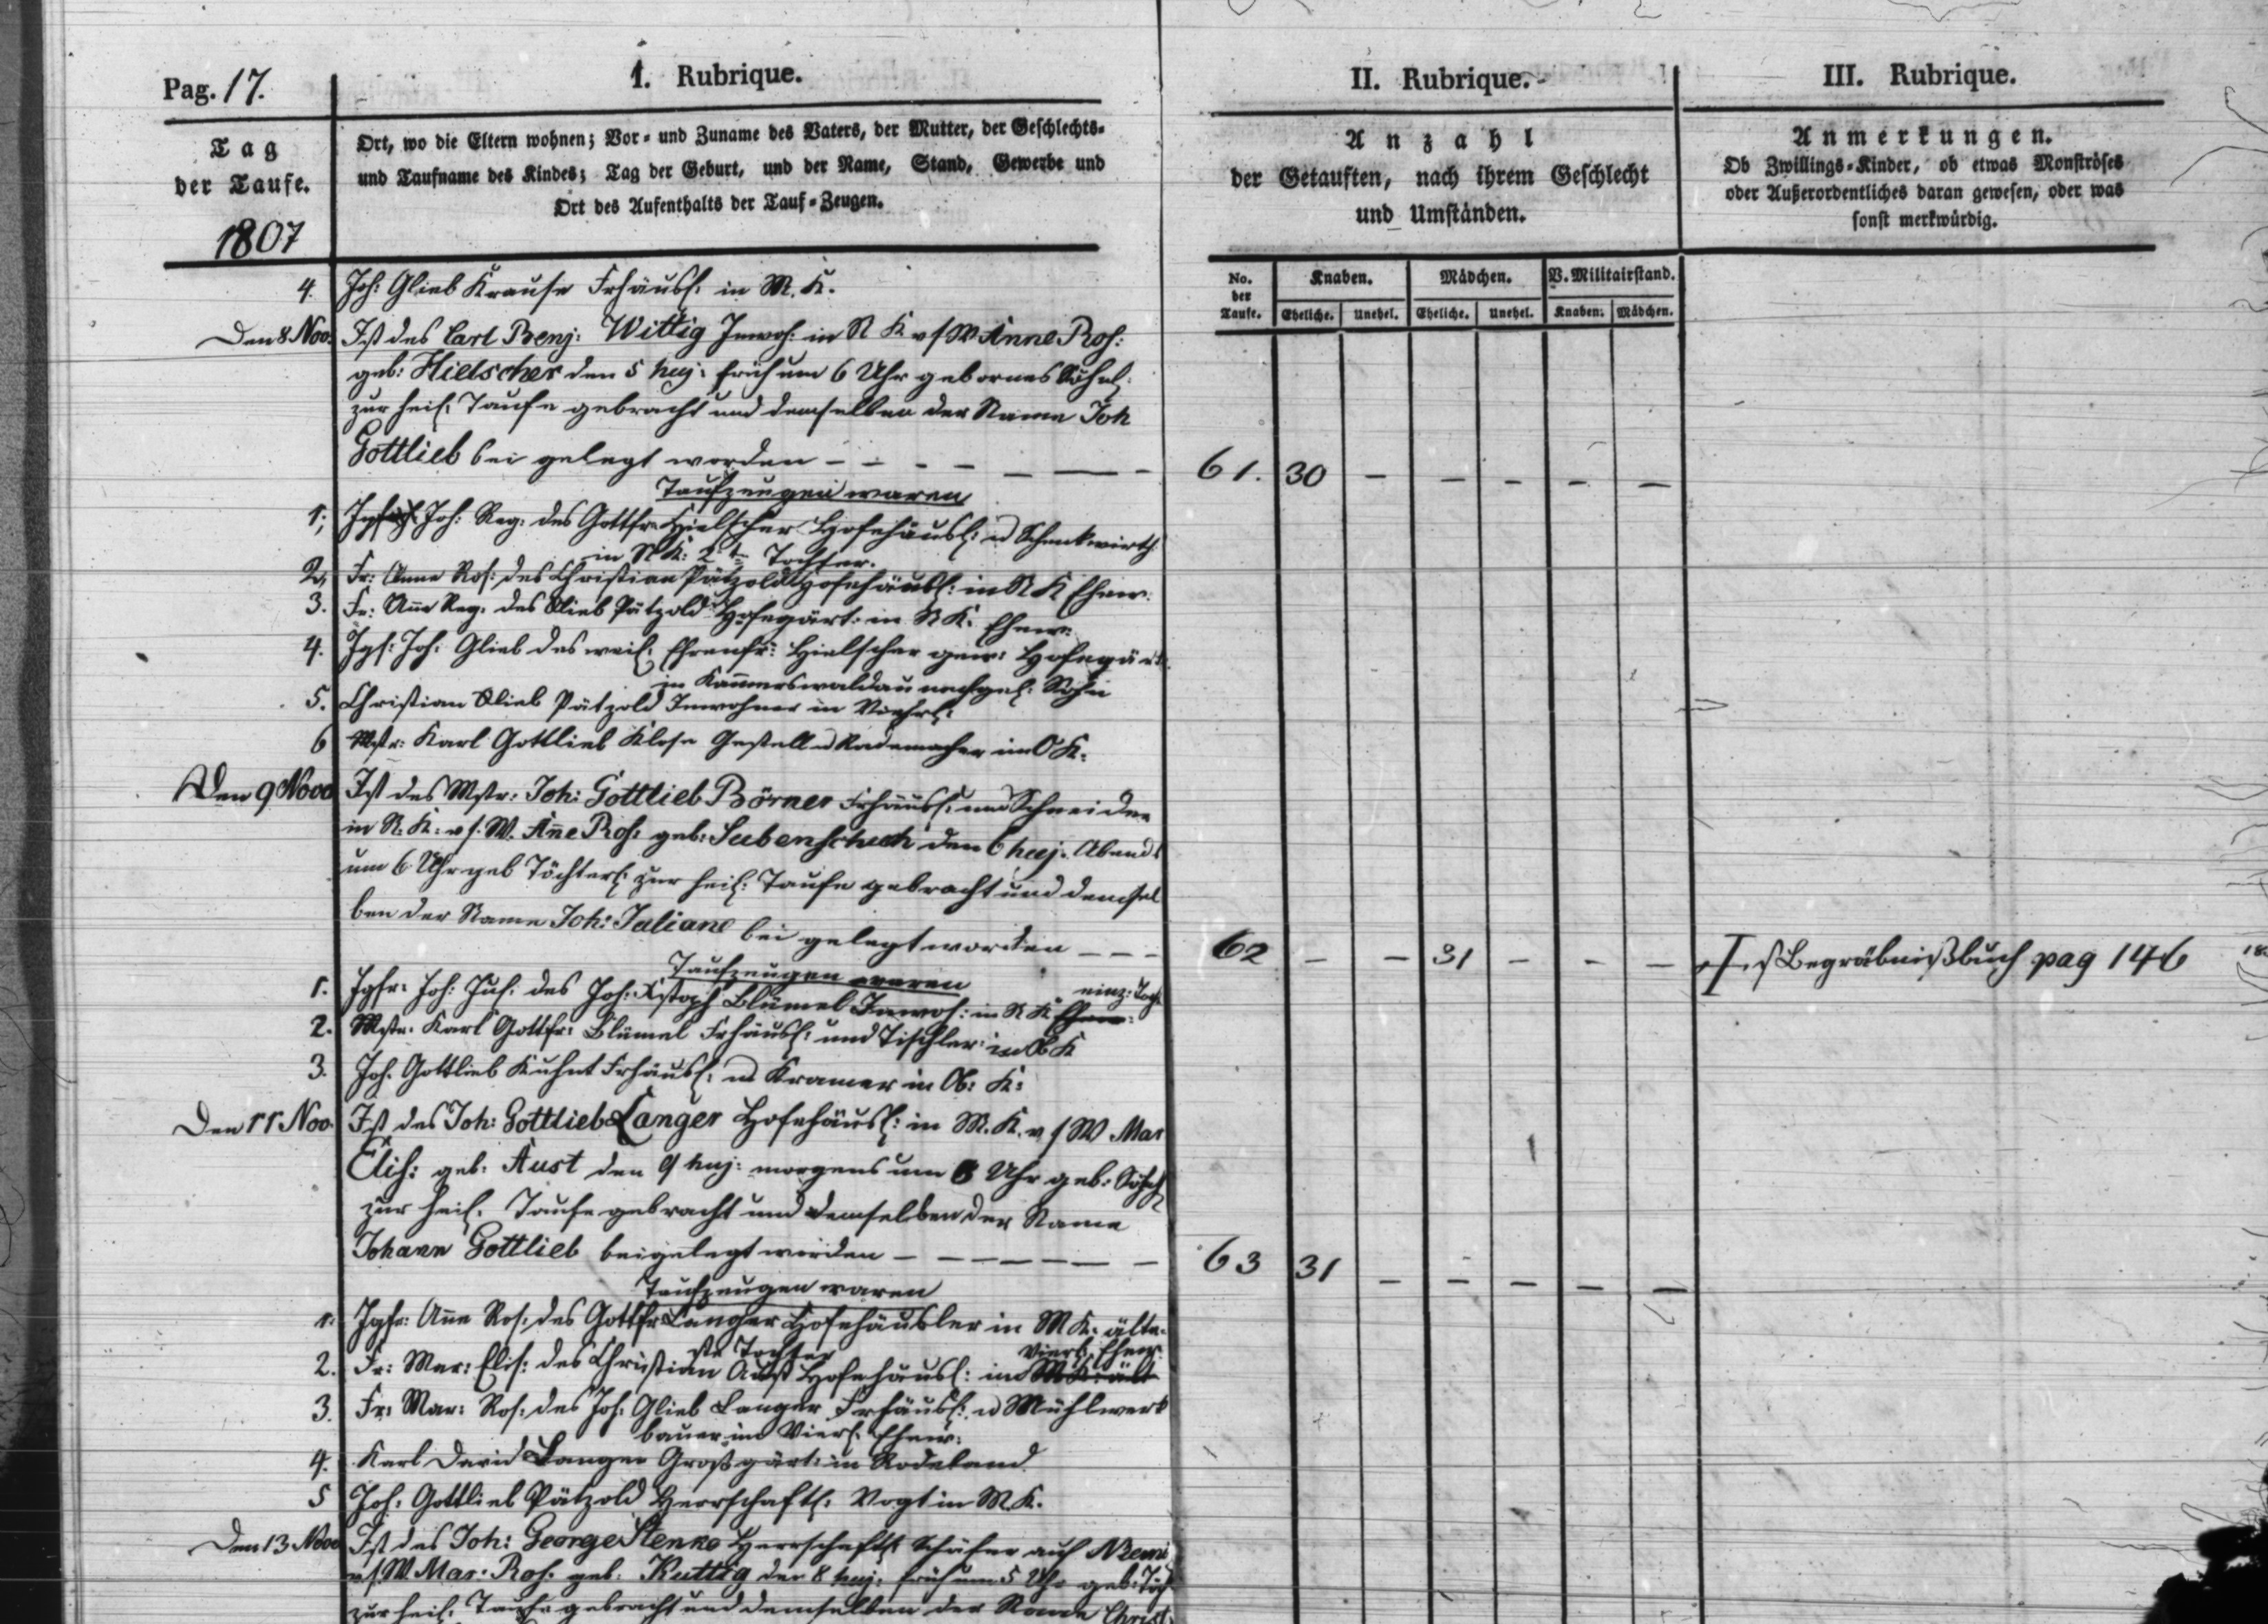 Pag. 17.
I. Rubrique.
II. Rubrique.
III. Rubrique.
Tag
der Taufe.
1807
Ort, wo die Eltern wohnen; Vor- und Zuname des Vaters, der Mutter, der Geschlechts-
und Taufname des Kindes; Tag der Geburt, und der Name, Stand, Gewerbe und
Ort des Aufenthalts der Tauf-Zeugen.
Anzahl
der Getauften, nach ihrem Geschlecht
und Umständen.
Anmerkungen.
Ob Zwillings-Kinder, ob etwas Monströses
oder Außerordentliches daran gewesen, oder was
sonst merkwürdig.
No. der Taufe.
Knaben. Mädchen. V. Militairstand.
Eheliche. Unehel. Eheliche. Unehel. Knaben. Mädchen.
4. Joh: Glieb Krause Frhäusl: in M. K.
Den 8 Nov. Ist des Carl Benj: Wittig Inwoh: in N K v s W Anne Ros:
geb: Hielscher den 5 huj: früh um 6 Uhr gebornes Söhnl:
zur heil: Taufe gebracht und demselben der Name Joh
Gottlieb bei gelegt worden - - - - - - - 61. 30 - - - - -
Taufzeugen waren
1; Joh: Reg: des Gottfr: Hielscher Hofehäusl: u Schenkwirth
in N K: 2te Tochter.
2, Fr: Anne Ros: des Christian Pätzold Hofehäusl: in N K Ehew:
3. Fr: Ane Reg: des Glieb Pätzold Hofegärt: in N K. Ehew:
4. Jgs: Joh: Glieb des weil: Ehrenfr: Hielscher gew: Hofegärt:
in Kamerswaldau nachgel: Sohn
5. Christian Glieb Pätzold Inwohner in
6 Mstr: Karl Gottlieb Klose Gestell u Rademacher in O K.
Den 9 Nov Ist des Mstr: Joh: Gottlieb Börner Frhäusl: und Schneider
in N. K: v s. W. Ane Ros: geb: Subenschuch den 6 huj. Abends
um 6 Uhr geb Töchterl: zur heil: Taufe gebracht und demsel
ben der Name Joh: Juliane bei gelegt worden - - - 62 - - 31 - - - s Begräbnißbuch pag 146
Taufzeugen waren
1. Jgfr: Joh: Jul: des Joh: Xstoph Blümel Inwoh: in N K einz: Tocht
2. Mstr. Karl Gottfr: Blümel Frhäusl: und Tischler in Ob K
3. Joh. Gottlieb Kuhnt Frhäusl: u Kramer in Ob: K:
Den 11 Nov. Ist des Joh: Gottlieb Langer Hofehäusl: in M. K. v s W Mar
Elis: geb: Aust den 9 huj: morgens um 6 Uhr geb: Söhnl
zur heil. Taufe gebracht und demselben der Name
Johann Gottlieb beigelegt worden - - - - - - - 63 31 - - - - -
Taufzeugen waren
1. Jgfr: Ane Ros: des Gottfr Langer Hofehäusler in M K. älte-
ste Tochter
2. Fr: Mar: Elis: des Christian Aust Hofehäusl: in Ehew:
3. Fr: Mar: Ros: des Joh: Glieb Langer Frhäusl: u Mühlwerk
bauer in Ehew:
4. Karl David Langer Großgärt: in Rodeland
5 Joh: Gottlieb Pätzold Herrschaftl: Vogt in M K.
Den 13 Nov Ist des Joh: George Herrschaftl Schäfer auf
v s W Mar: Ros. geb: Ruttig den 8 huj: früh um 5 Uhr geb: Töch
zur heil. Taufe gebracht und demselben der Name Christ